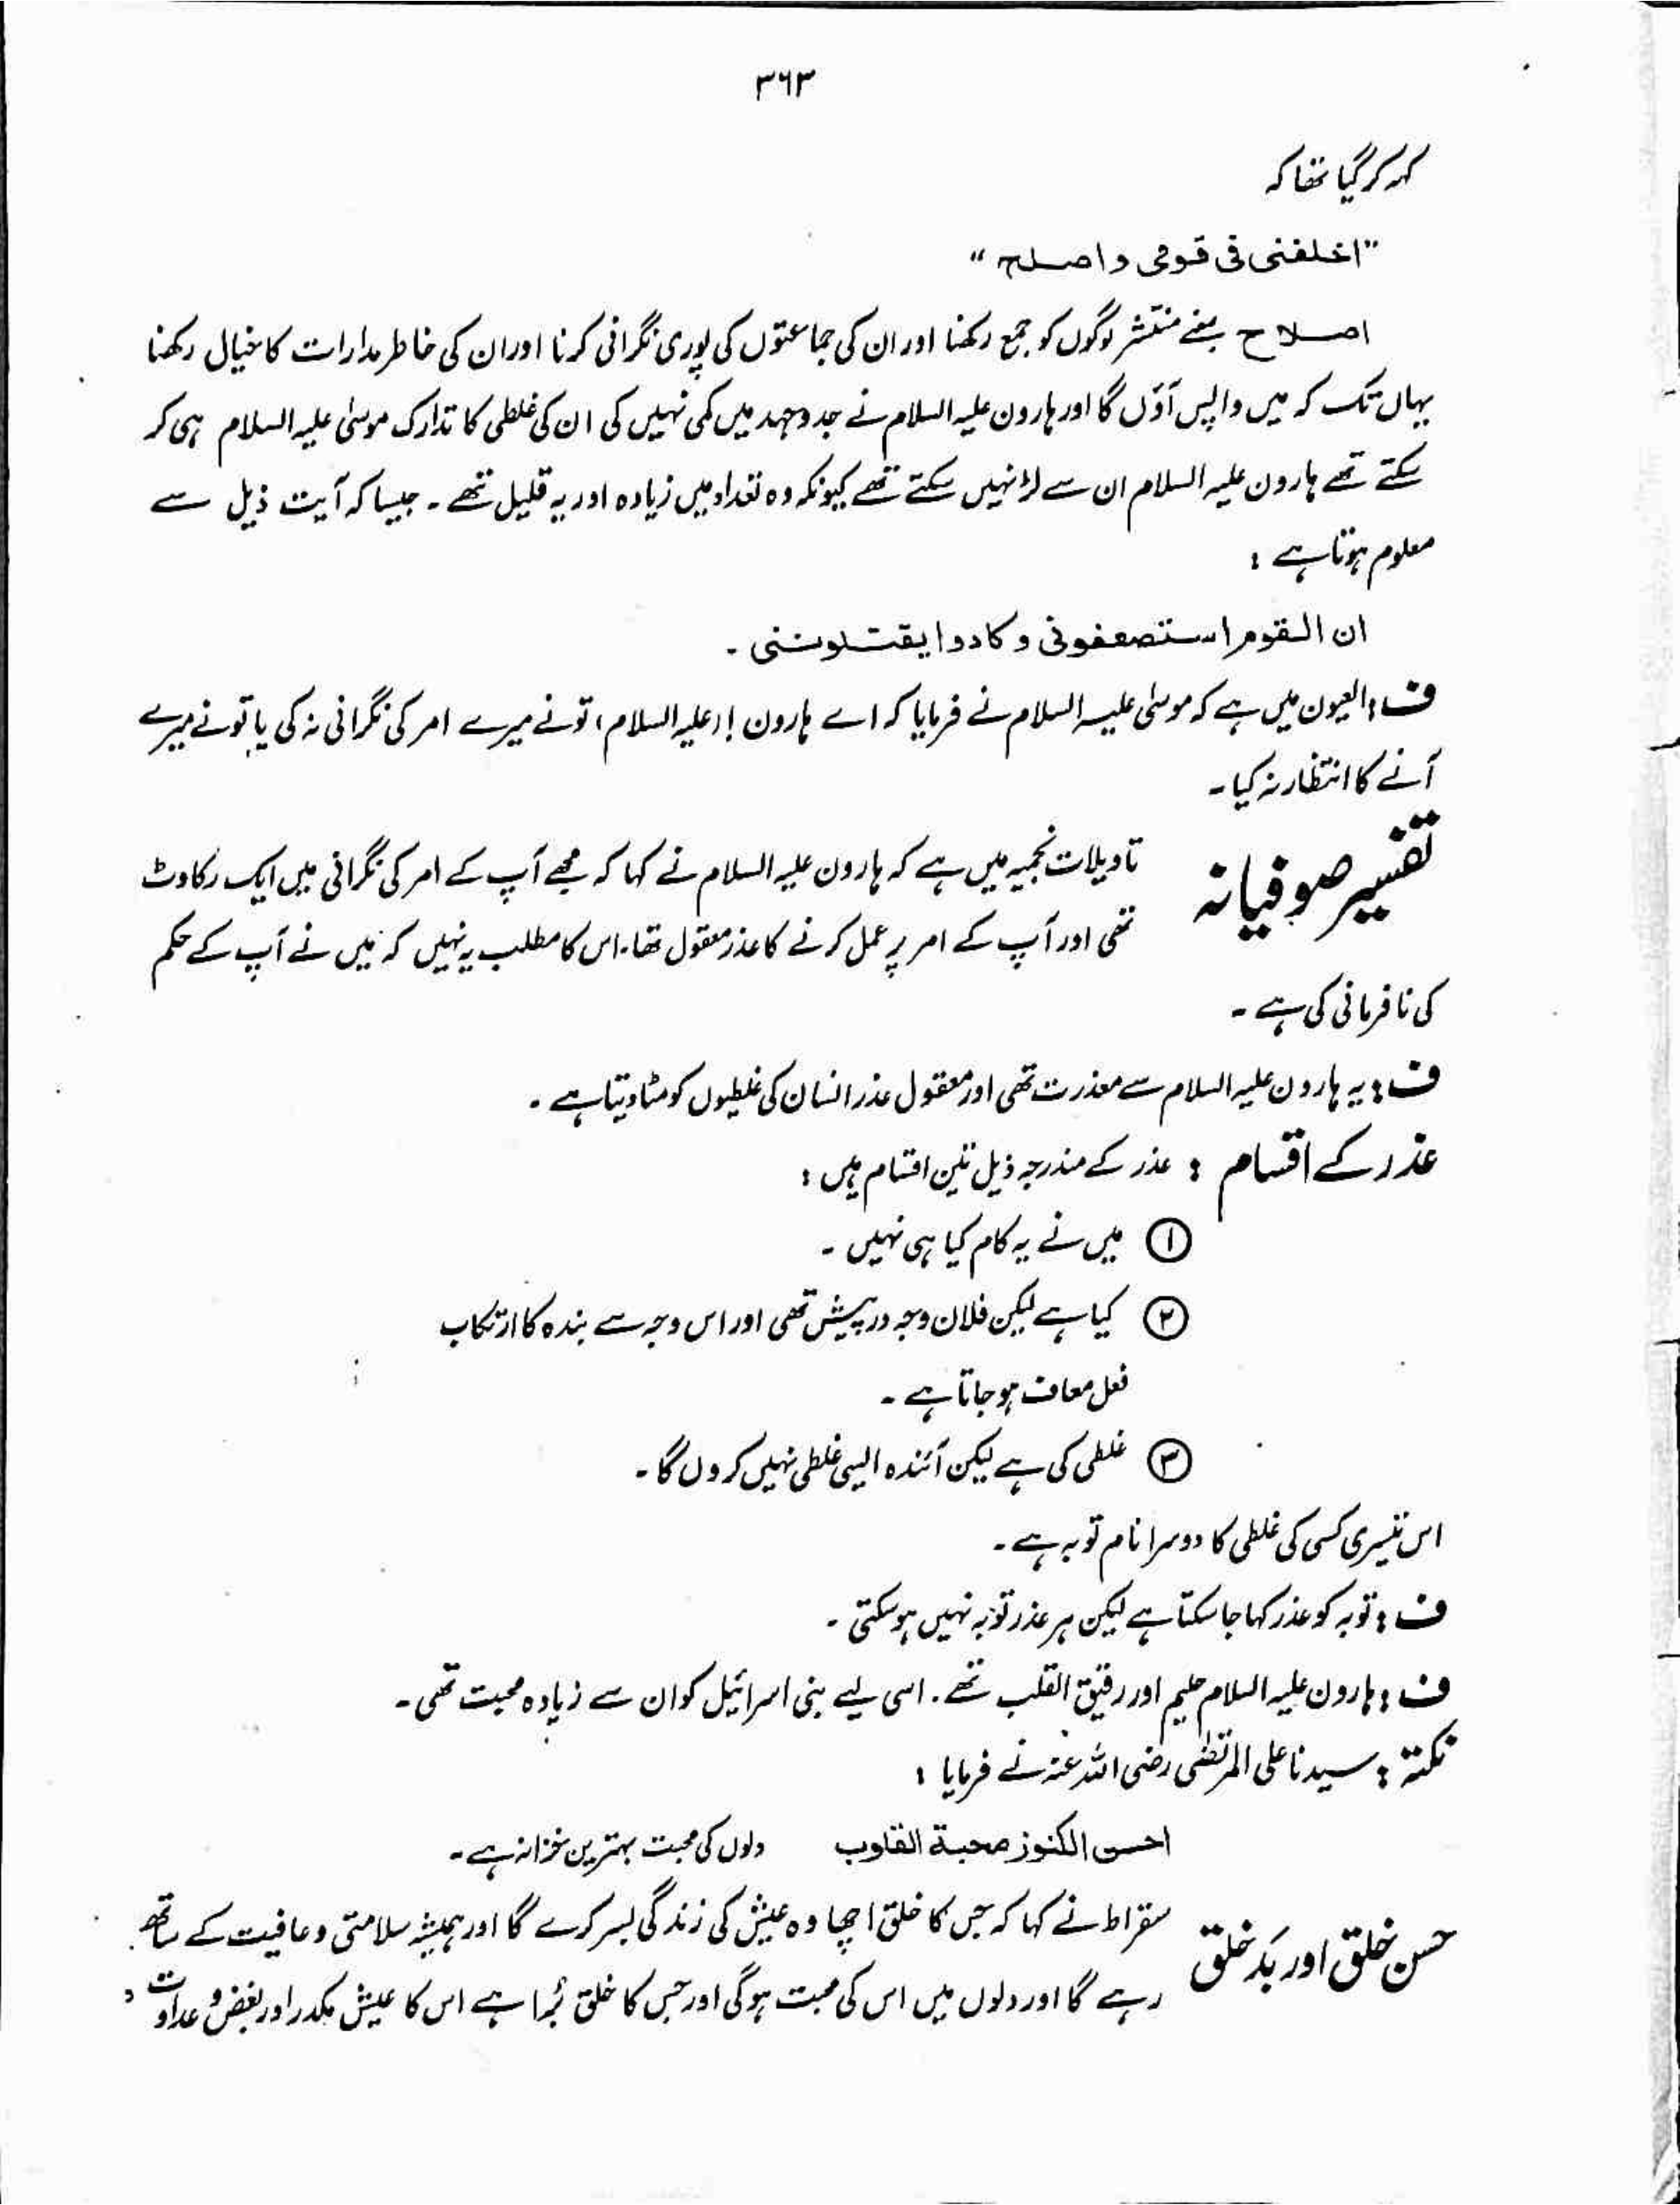 ۳۶۳
کہہ کر گیا تھا کہ
"اخلفنی فی قومی و اصلح"
اصلاح بمعنے منتشر لوگوں کو جمع رکھنا اور ان کی جماعتوں کی پوری نگرانی کرنا اور ان کی خاطر مدارات کا خیال رکھنا
یہاں تک کہ میں واپس آؤں گا اور ہارون علیہ السلام نے جدوجہد میں کمی نہیں کی ان کی غلطی کا تدارک موسیٰ علیہ السلام ہی کر
سکتے تھے ہارون علیہ السلام ان سے لڑ نہیں سکتے تھے کیونکہ وہ تعداد میں زیادہ اور یہ قلیل تھے ۔ جیسا کہ آیت ذیل سے
معلوم ہوتا ہے :
ان القوم استضعفونی و کادوا یقتلوننی ۔
ف : العیون میں ہے کہ موسیٰ علیہ السلام نے فرمایا کہ اے ہارون ! (علیہ السلام) تو نے میرے امر کی نگرانی نہ کی یا تو نے میرے
آنے کا انتظار نہ کیا ۔
تفسیر صوفیانہ تاویلات نجمیہ میں ہے کہ ہارون علیہ السلام نے کہا کہ مجھے آپ کے امر کی نگرانی میں ایک رکاوٹ
تھی اور آپ کے امر پر عمل کرنے کا عذر معقول تھا ۔ اس کا مطلب یہ نہیں کہ میں نے آپ کے حکم
کی نافرمانی کی ہے ۔
ف : یہ ہارون علیہ السلام سے معذرت تھی اور معقول عذر انسان کی غلطیوں کو مٹا دیتا ہے ۔
عذر کے اقسام : عذر کے مندرجہ ذیل تین اقسام ہیں :
① میں نے یہ کام کیا ہی نہیں ۔
② کیا ہے لیکن فلاں وجہ درپیش تھی اور اس وجہ سے بندہ کا ارتکاب
فعل معاف ہو جاتا ہے ۔
③ غلطی کی ہے لیکن آئندہ ایسی غلطی نہیں کروں گا ۔
اس تیسری کسی کی غلطی کا دوسرا نام توبہ ہے ۔
ف : توبہ کو عذر کہا جا سکتا ہے لیکن ہر عذر توبہ نہیں ہو سکتی ۔
ف : ہارون علیہ السلام حلیم اور رقیق القلب تھے ۔ اسی لیے بنی اسرائیل کو ان سے زیادہ محبت تھی ۔
نکتہ : سیدنا علی المرتضیٰ رضی اللہ عنہ نے فرمایا :
احسن الکنوز محبة القلوب دلوں کی محبت بہترین خزانہ ہے ۔
حسن خلق اور بد خلق سقراط نے کہا کہ جس کا خلق اچھا وہ عیش کی زندگی بسر کرے گا اور ہمیشہ سلامتی و عافیت کے ساتھ
رہے گا اور دلوں میں اس کی محبت ہوگی اور جس کا خلق بُرا ہے اس کا عیش مکدر اور بغض و عداوت